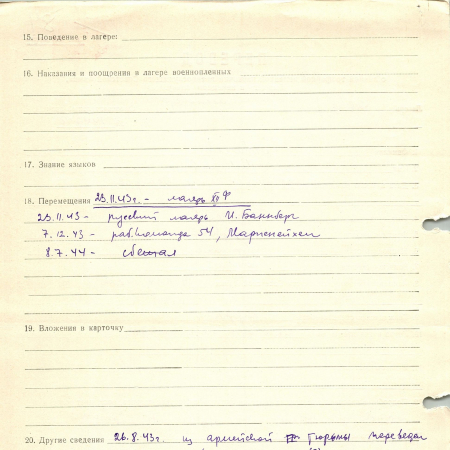 15. Поведение в лагере:
16. Наказания и поощрения в лагере военнопленных
17. Знание языков
18. Перемещения 23.11.43г. - лагерь XII Ф
23.11.43 - русский лагерь И. Баннберг
7.12.43 - раб. команда 54, Мариенейхен
8.7.44 - сбежал
19. Вложения в карточку
20. Другие сведения 26.8.43г. из армейской тюрьмы переведен